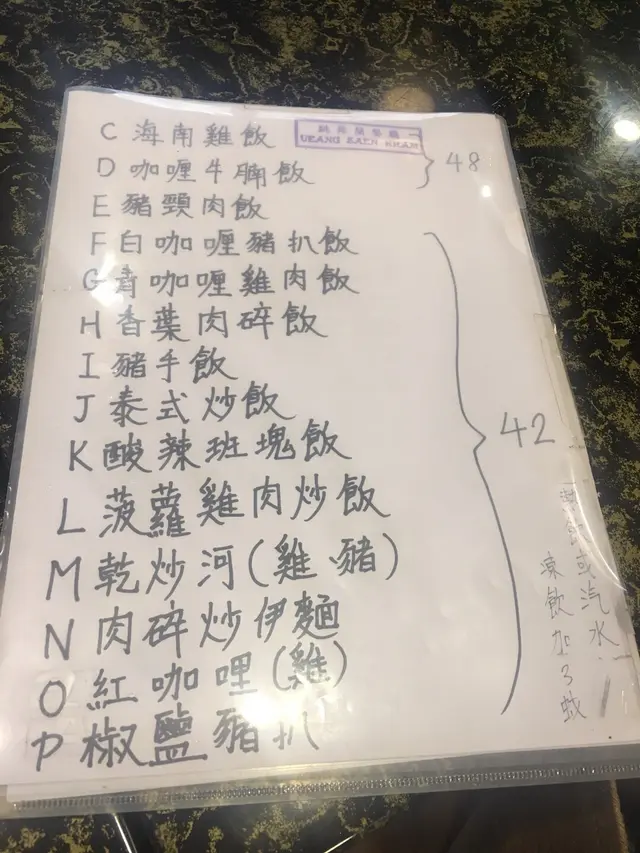 C 海南雞飯
D 咖喱牛腩飯
UEANG ZAEN KHAM
48
E 豬頸肉飯
F 白咖喱豬扒飯
G 青咖喱雞肉飯
H 香葉肉碎飯
I 豬手飯
J 泰式炒飯
K 酸辣班塊飯
L 菠蘿雞肉炒飯
M 乾炒河(雞、豬)
N 肉碎炒伊麵
O 紅咖哩(雞)
P 椒鹽豬扒
42
或汽水
凍飲加3蚊